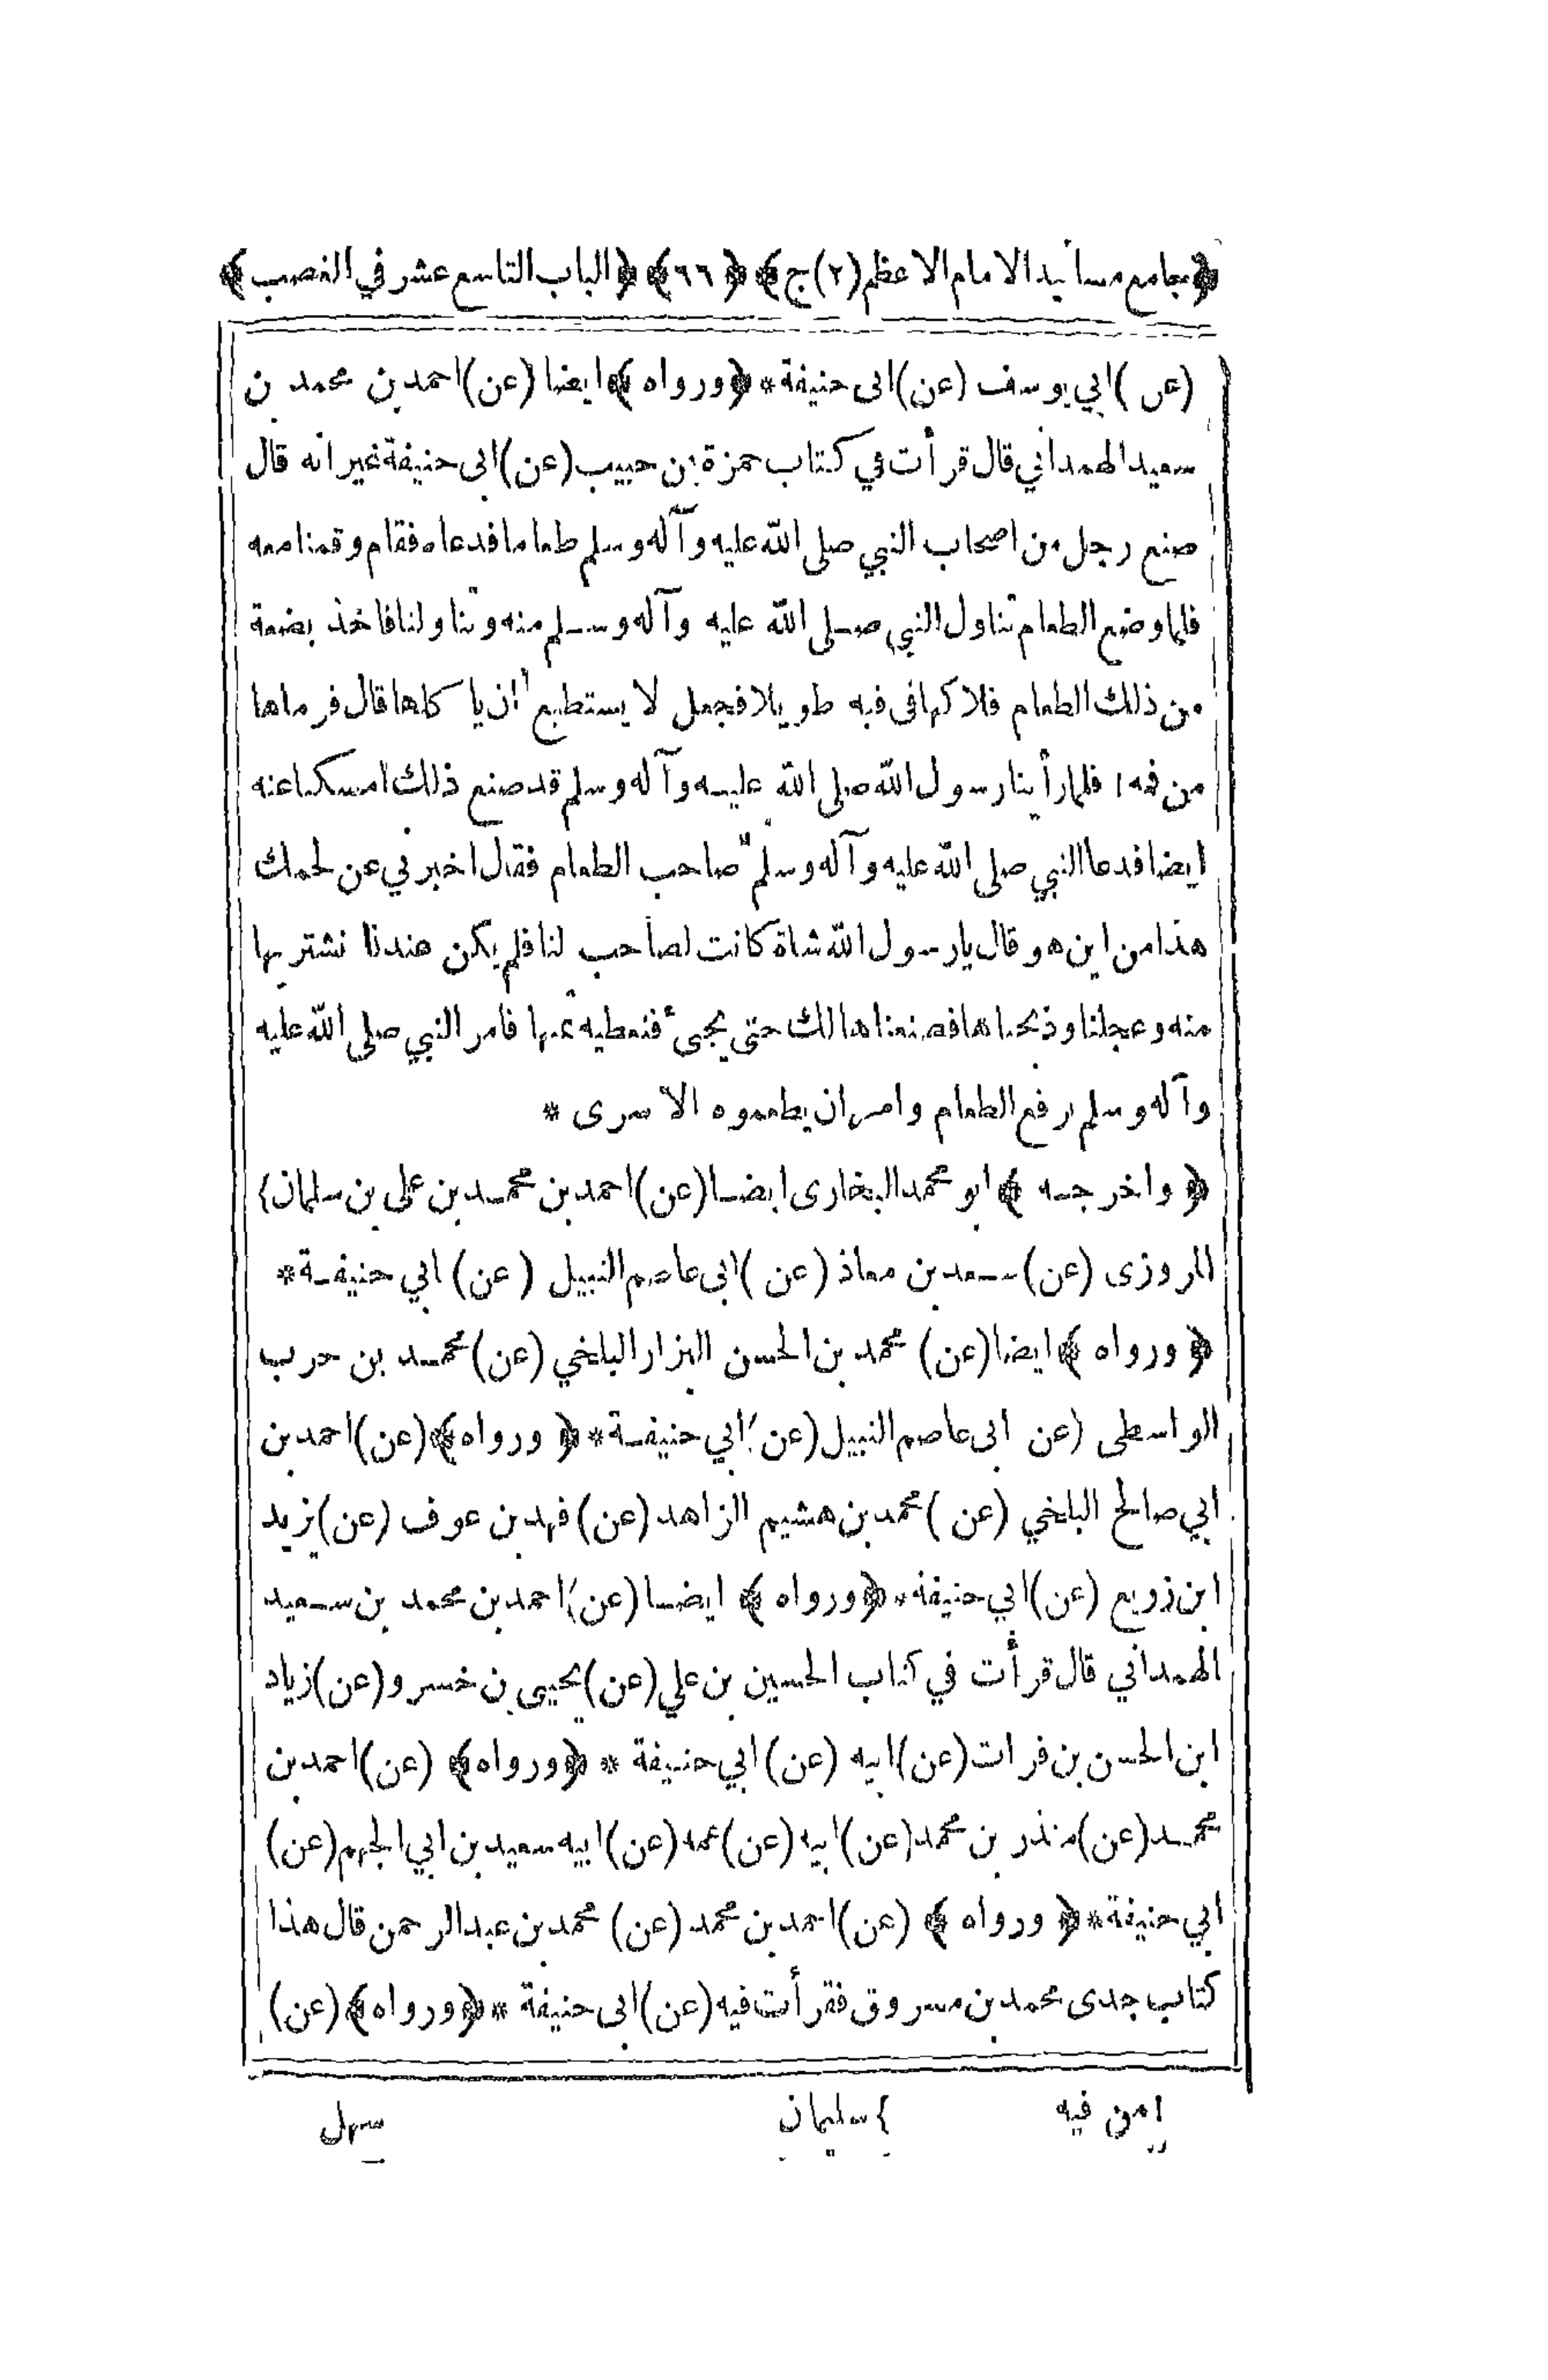 ﴿جامع مسانيد الامام الاعظم (٢) ج﴾ ﴿٩٦﴾ ﴿الباب التاسع عشر في الغصب﴾
(عن) ابي يوسف (عن) ابى حنيفة * ﴿ورواه﴾ ايضا (عن) احمد بن محمد بن
سعيد الهمداني قال قرأت في كتاب حمزة بن حبيب (عن) ابى حنيفة غير انه قال
صنع رجل من اصحاب النبي صلى الله عليه وآله وسلم طعاما فدعاه فقام وقمنا معه
فلما وضع الطعام تناول النبي صلى الله عليه وآله وسلم منه وتناولنا فاخذ بضعة
من ذلك الطعام فلاكها فى فيه طويلا فجعل لا يستطيع ان يأكلها قال فرماها
من فمه ١ فلما رأينا رسول الله صلى الله عليه وآله وسلم قد صنع ذلك امسكنا عنه
ايضا فدعا النبي صلى الله عليه وآله وسلم صاحب الطعام فقال اخبرني عن لحمك
هذا من اين هو قال يا رسول الله شاة كانت لصاحب لنا فلم يكن عندنا نشتريها
منه وعجلنا وذبحناها فصنعناها لك حتى يجىء فنعطيه ثمنها فامر النبي صلى الله عليه
وآله وسلم برفع الطعام وامر ان يطعموه الاسرى *
﴿واخرجه﴾ ابو محمد البخارى ايضا (عن) احمد بن محمد بن على بن سلمان ٢
المروزى (عن) سعد بن معاذ (عن) ابى عاصم النبيل (عن) ابي حنيفة *
﴿ورواه﴾ ايضا (عن) محمد بن الحسن البزار البلخي (عن) محمد بن حرب
الواسطى (عن ابى عاصم النبيل (عن) ابي حنيفة * ﴿ورواه﴾ (عن) احمد بن
ابي صالح البلخي (عن) محمد بن هشيم الزاهد (عن) فهد بن عوف (عن) يزيد
ابن زريع (عن) ابي حنيفة * ﴿ورواه﴾ ايضا (عن) احمد بن محمد بن سعيد
الهمداني قال قرأت في كتاب الحسين بن علي (عن) يحيى بن خسرو (عن) زياد
ابن الحسن بن فرات (عن) ابيه (عن) ابي حنيفة * ﴿ورواه﴾ (عن) احمد بن
محمد (عن) منذر بن محمد (عن) ابيه (عن) عمه (عن) ابيه سعيد بن ابي الجهم (عن)
ابي حنيفة * ﴿ورواه﴾ (عن) احمد بن محمد (عن) محمد بن عبد الرحمن قال هذا
كتاب جدى محمد بن مسروق فقرأت فيه (عن) ابى حنيفة * ﴿ورواه﴾ (عن)
١ من فيه ٢ سليمان سهل